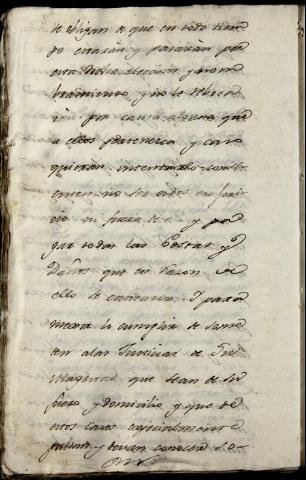 se obligan a que en todo tiem
po estarán y pasarán por
esta dicha eleccion y nom
bramiento y no lo reboca
rán por causa alguna que
a ellos pertenezca y caso
quieran intentarlo consi
enten no ser oidos en jui
cio ni fuera de el y pa
gar todas las Costas y
Daños que en razon de
ello se causaren. Y para
mexor lo cumplir se some
ten a las Justicias de Su
Magestad que sean de su
fuero y domicilio y que de
estos casos especialmente
puedan y devan conocer Lo-